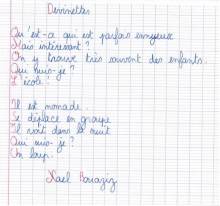 Devinettes
Qu'est-a qui est parfois ennuyeux
Mais intéressant ?
On y trouve très souvent des enfants.
Qui suis-je ?
L'école !
Il est nomade.
Se déplace en groupe
Il voit dans la nuit
Qui suis-je ?
Un loup.
Nael Bouaziz